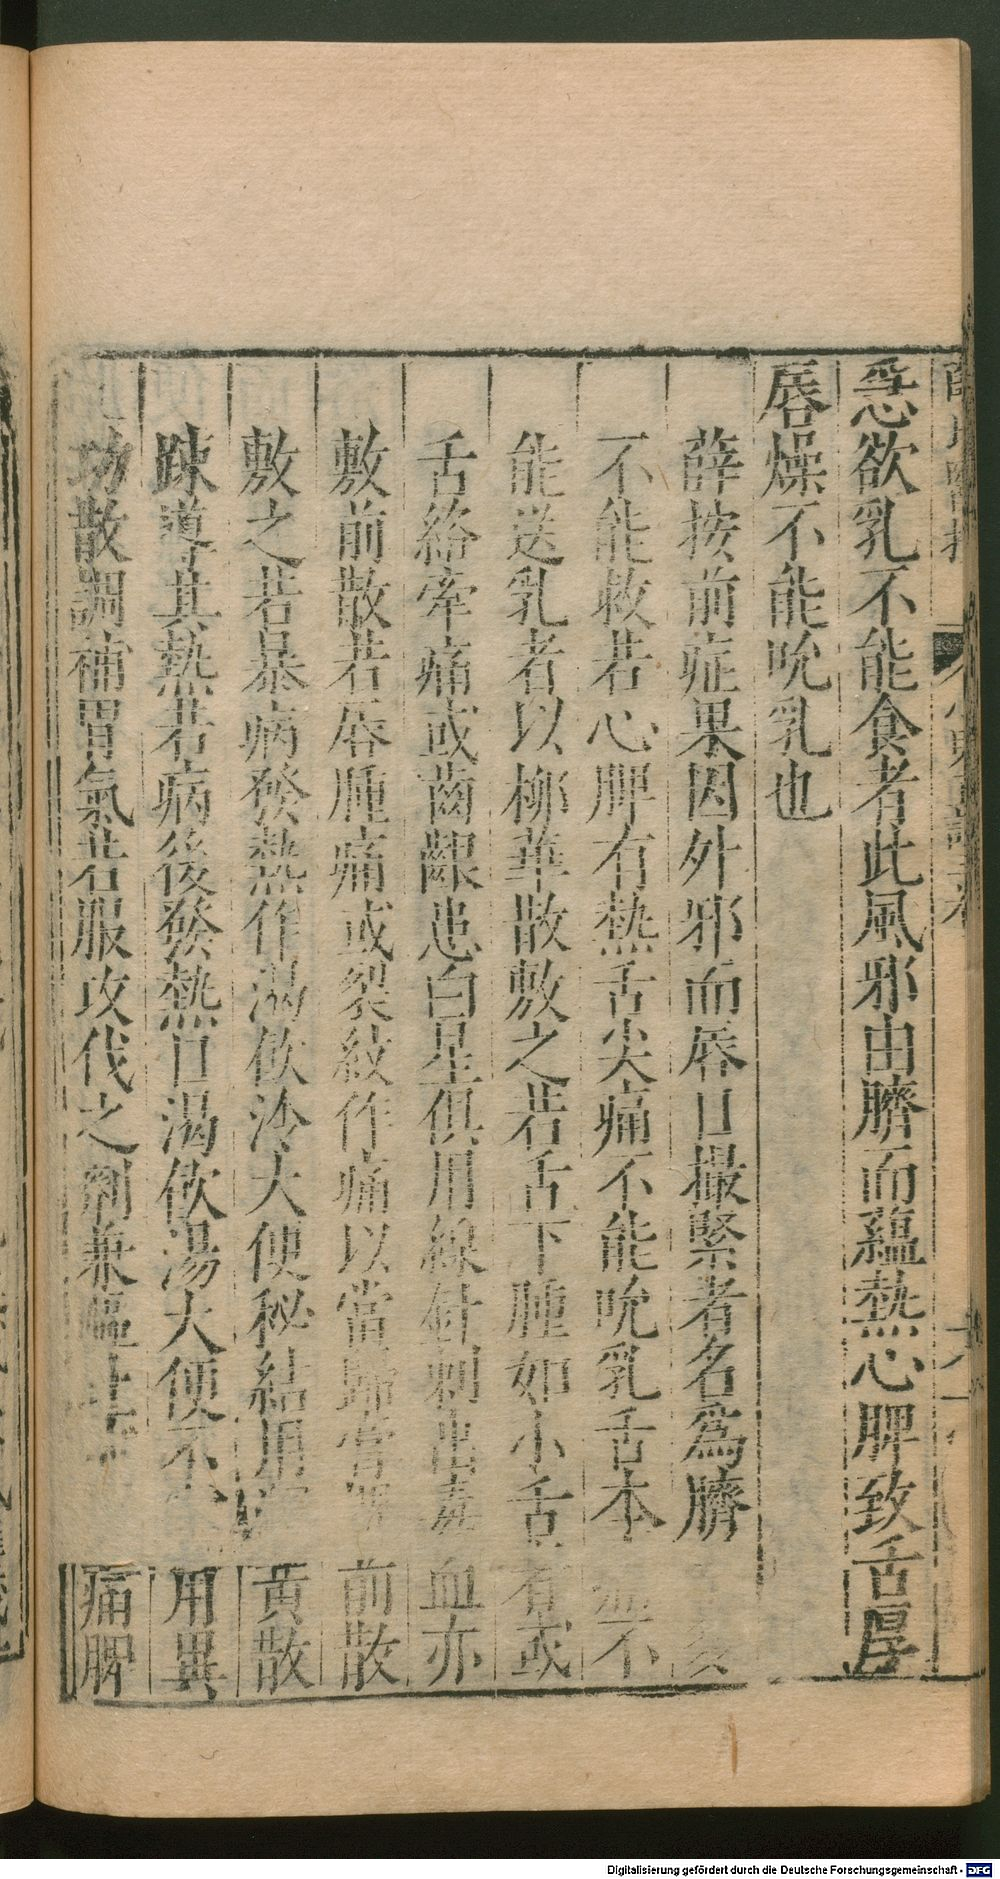 恙欲乳不能食者此風邪由臍而蘊熱心脾致舌厚
唇燥不能吮乳也
薛按前症果因外邪而唇口撮緊者名為臍
不能救若心脾有熱舌尖痛不能吮乳舌本不
能送乳者以柳華散敷之若舌下腫如小舌有或
舌絡牽痛或齒齦患白星俱用線針刺出毒血亦
敷前散若唇腫痛或裂紋作痛以當歸膏前散
敷之若暴病發熱作渴飲冷大便秘結用黃散
疎導其熱若病後發熱口渴飲湯大便不用異
功散調補胃氣若服攻伐之劑兼痛脾
Digitalisierung gefördert durch die Deutsche Forschungsgemeinschaft - DFG